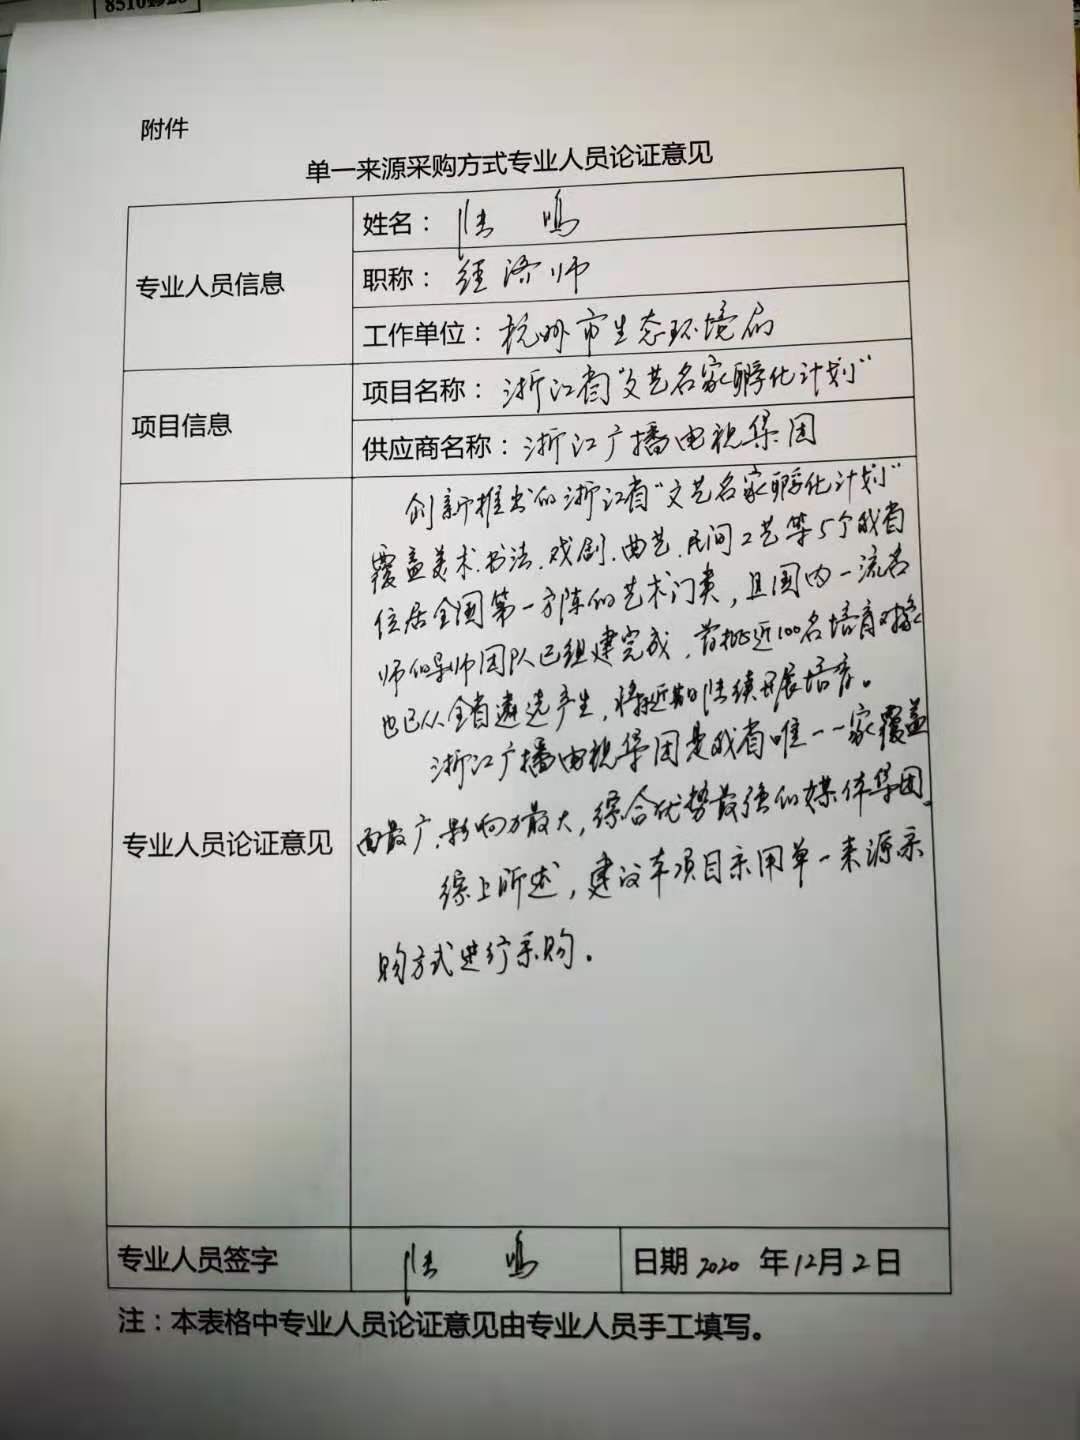 附件
单一来源采购方式专业人员论证意见
专业人员信息
姓名：陆 鸣
职称：经济师
工作单位：杭州市生态环境局
项目信息
项目名称：浙江省“文艺名家孵化计划”
供应商名称：浙江广播电视集团
专业人员论证意见
创新推出的浙江省“文艺名家孵化计划”
覆盖美术、书法、戏剧、曲艺、民间工艺等5个我省
位居全国第一方阵的艺术门类，且国内一流名
师的导师团队已组建完成，首批近100名培育对象
也已从全省遴选产生，将近期陆续开展培育。
浙江广播电视集团是我省唯一一家覆盖
面最广、影响力最大，综合优势最强的媒体集团。
综上所述，建议本项目采用单一来源采
购方式进行采购。
专业人员签字
陆 鸣
日期 2020 年12月2日
注：本表格中专业人员论证意见由专业人员手工填写。